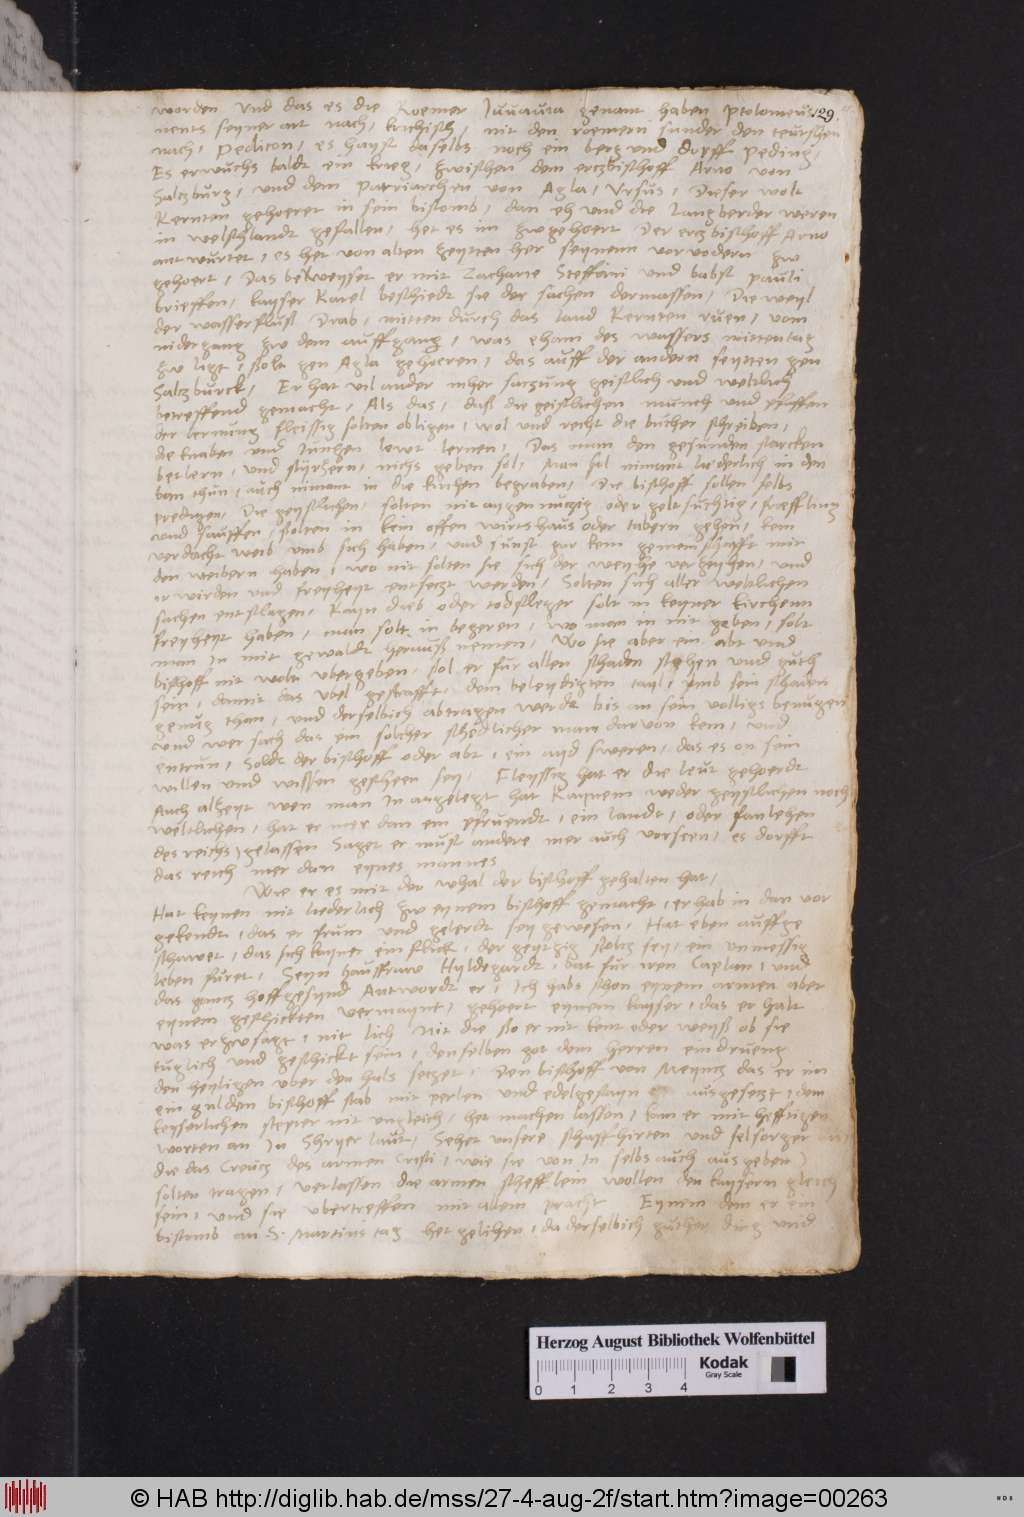 worden und das es die Roemer Juuauia genant haben Ptolomeus
129.
nents seyner art nach, krichisch, mit den roemern sunder den teutschen
nach, Pedicon, es hayst daselbs noch ein berg und dorff Peding,
Es erwuchs baldt ein krieg, zwischen dem ertzbischoff Arno von
Saltzburg, und dem Patriarchen von Agla, Ursus, Dieser wolt
Kernten gehoeret in sein bistomb, dan eh und die Langberder weren
in welschlandt gefallen, het es im zwgehoert Der ertzbischoff Arno
antwurtet, es het von alten zeytten her seynem vorvodern zw
gehoert, Das beweyset er mit Zacharie Steffani und babst pauli
brieffen, kayser Karel beschiedt sie der sachen dermassen, Die weyl
der wasserfluß Drab, mitten durch das land Kernten ruen, vom
nidergang zw dem auffgang, was eham des wassers mittentag
zw ligt, solt gen Agla gehoeren, das auff der andern seytten gen
Saltzburck, Er hat vil ander mher satzung geistlich und weltlich
betreffend gemacht, Als das, daß die geistlichen munch und pfaffen
der lernung fleissig solten obligen, wol und recht die bucher schreiben,
die knaben und Junchen lewt lernen, Das man den gesunden starcken
betlern, und sturtzern, nichs geben sol, Man sol nimant liederlich in den
ban thun, auch nimant in die kirchen begraben, Die bischoff sollen selbs
predigen, Die geystlichen, solten nit aygennutzig oder geltsuchtig,
und sauffen, Solten in kein offen wirtshaus oder tabern gehen, kein
verdacht weib umb sich haben, und sunst gar kein gemeinschafft mit
den weibern haben, wo nit solten sie sich der weyhe verzeyhen, und
irwirden und freyheyt entsetzt werden, Solten sich aller weltlichen
sachen entschlagen, Kayn dieb oder todschleger solt in keyner kirchenn
freyheyt haben, man solt in begeren, wo man in nit geben, solt
man In mit gewaldt herauß nemen, Wo sie aber ein abt und
bischoff nit wolt ubergeben, sol er fur allen schaden stehen und guth
sein, damit das ubel gestrafft, dem beleydigten tayl, umb sein schaden
genug than, und derselbich abtragen werdt bis an sein volligs benugen
und wer sach das ein solcher schedlicher man darvon kem, und
entrun, Soldt der bischoff oder abt, ein ayd sweren, das es on sein
willen und wissen gescheen sey, Fleyssig hat er die leut gehoerdt
Auch alzeyt wen man In angelegt hat Kaynem weder geystlichen noch
weltlichen, hat er mer dan ein pfruendt, ein landt, oder fanlehen
des reichs, gelassen Saget er must andere mer auch vorseen, es dorfft
das reich mer dan eynes mannes
Wie er es mit der whal der bischoff gehalten hat,
Hat keynen nit liederlich zw eynem bischoff gemacht, er hab in dan vor
gekendt, das er frum und gelerdt sey gewesen, Hat eben auffge
schawet, das sich kayner einflick, der geytzig stoltz sey, ein unmessig
leben furet, Seyn hausfraw Hyldegardt, bat fur iren Caplan, und
das gantz hoffgesynd Antwordt er, Ich gabs schon eynem armen aber
eynem geschickten vermaynt, gehoert eynem kayser, das er halt
was er zwsagt, nit lich Nit die so er nit kent oder weyß ob sie
tuglich und geschickt sein, denselben got dem herren eindrueng
den heyligen uber den hals setzet, Den bischoff von Meyntz das er im
ein gulden bischoff stab mit perlen und edelgestayn ausgesetzt, dem
keyserlichen scepter nit ungleich, het machen lassen, kam er mit hefftigen
worten an In Schryer laut, Sehet unsere schaffhirten und selsorger
die das Creutz des armen Cristi, wie sie von In selbs auch ausgeben
solten tragen, verlassen die armen schefflein wollen den kaysern gleich
sein, und sie ubertreffen mit allem pracht Eynem dem er ein
bistumb an S. Martins tag het gelihen, da derselbich guther ding und
Herzog August Bibliothek Wolfenbüttel
0 1 2 3 4
Kodak
Gray Scale
© HAB http://diglib.hab.de/mss/27-4-aug-2f/start.htm?image=00263